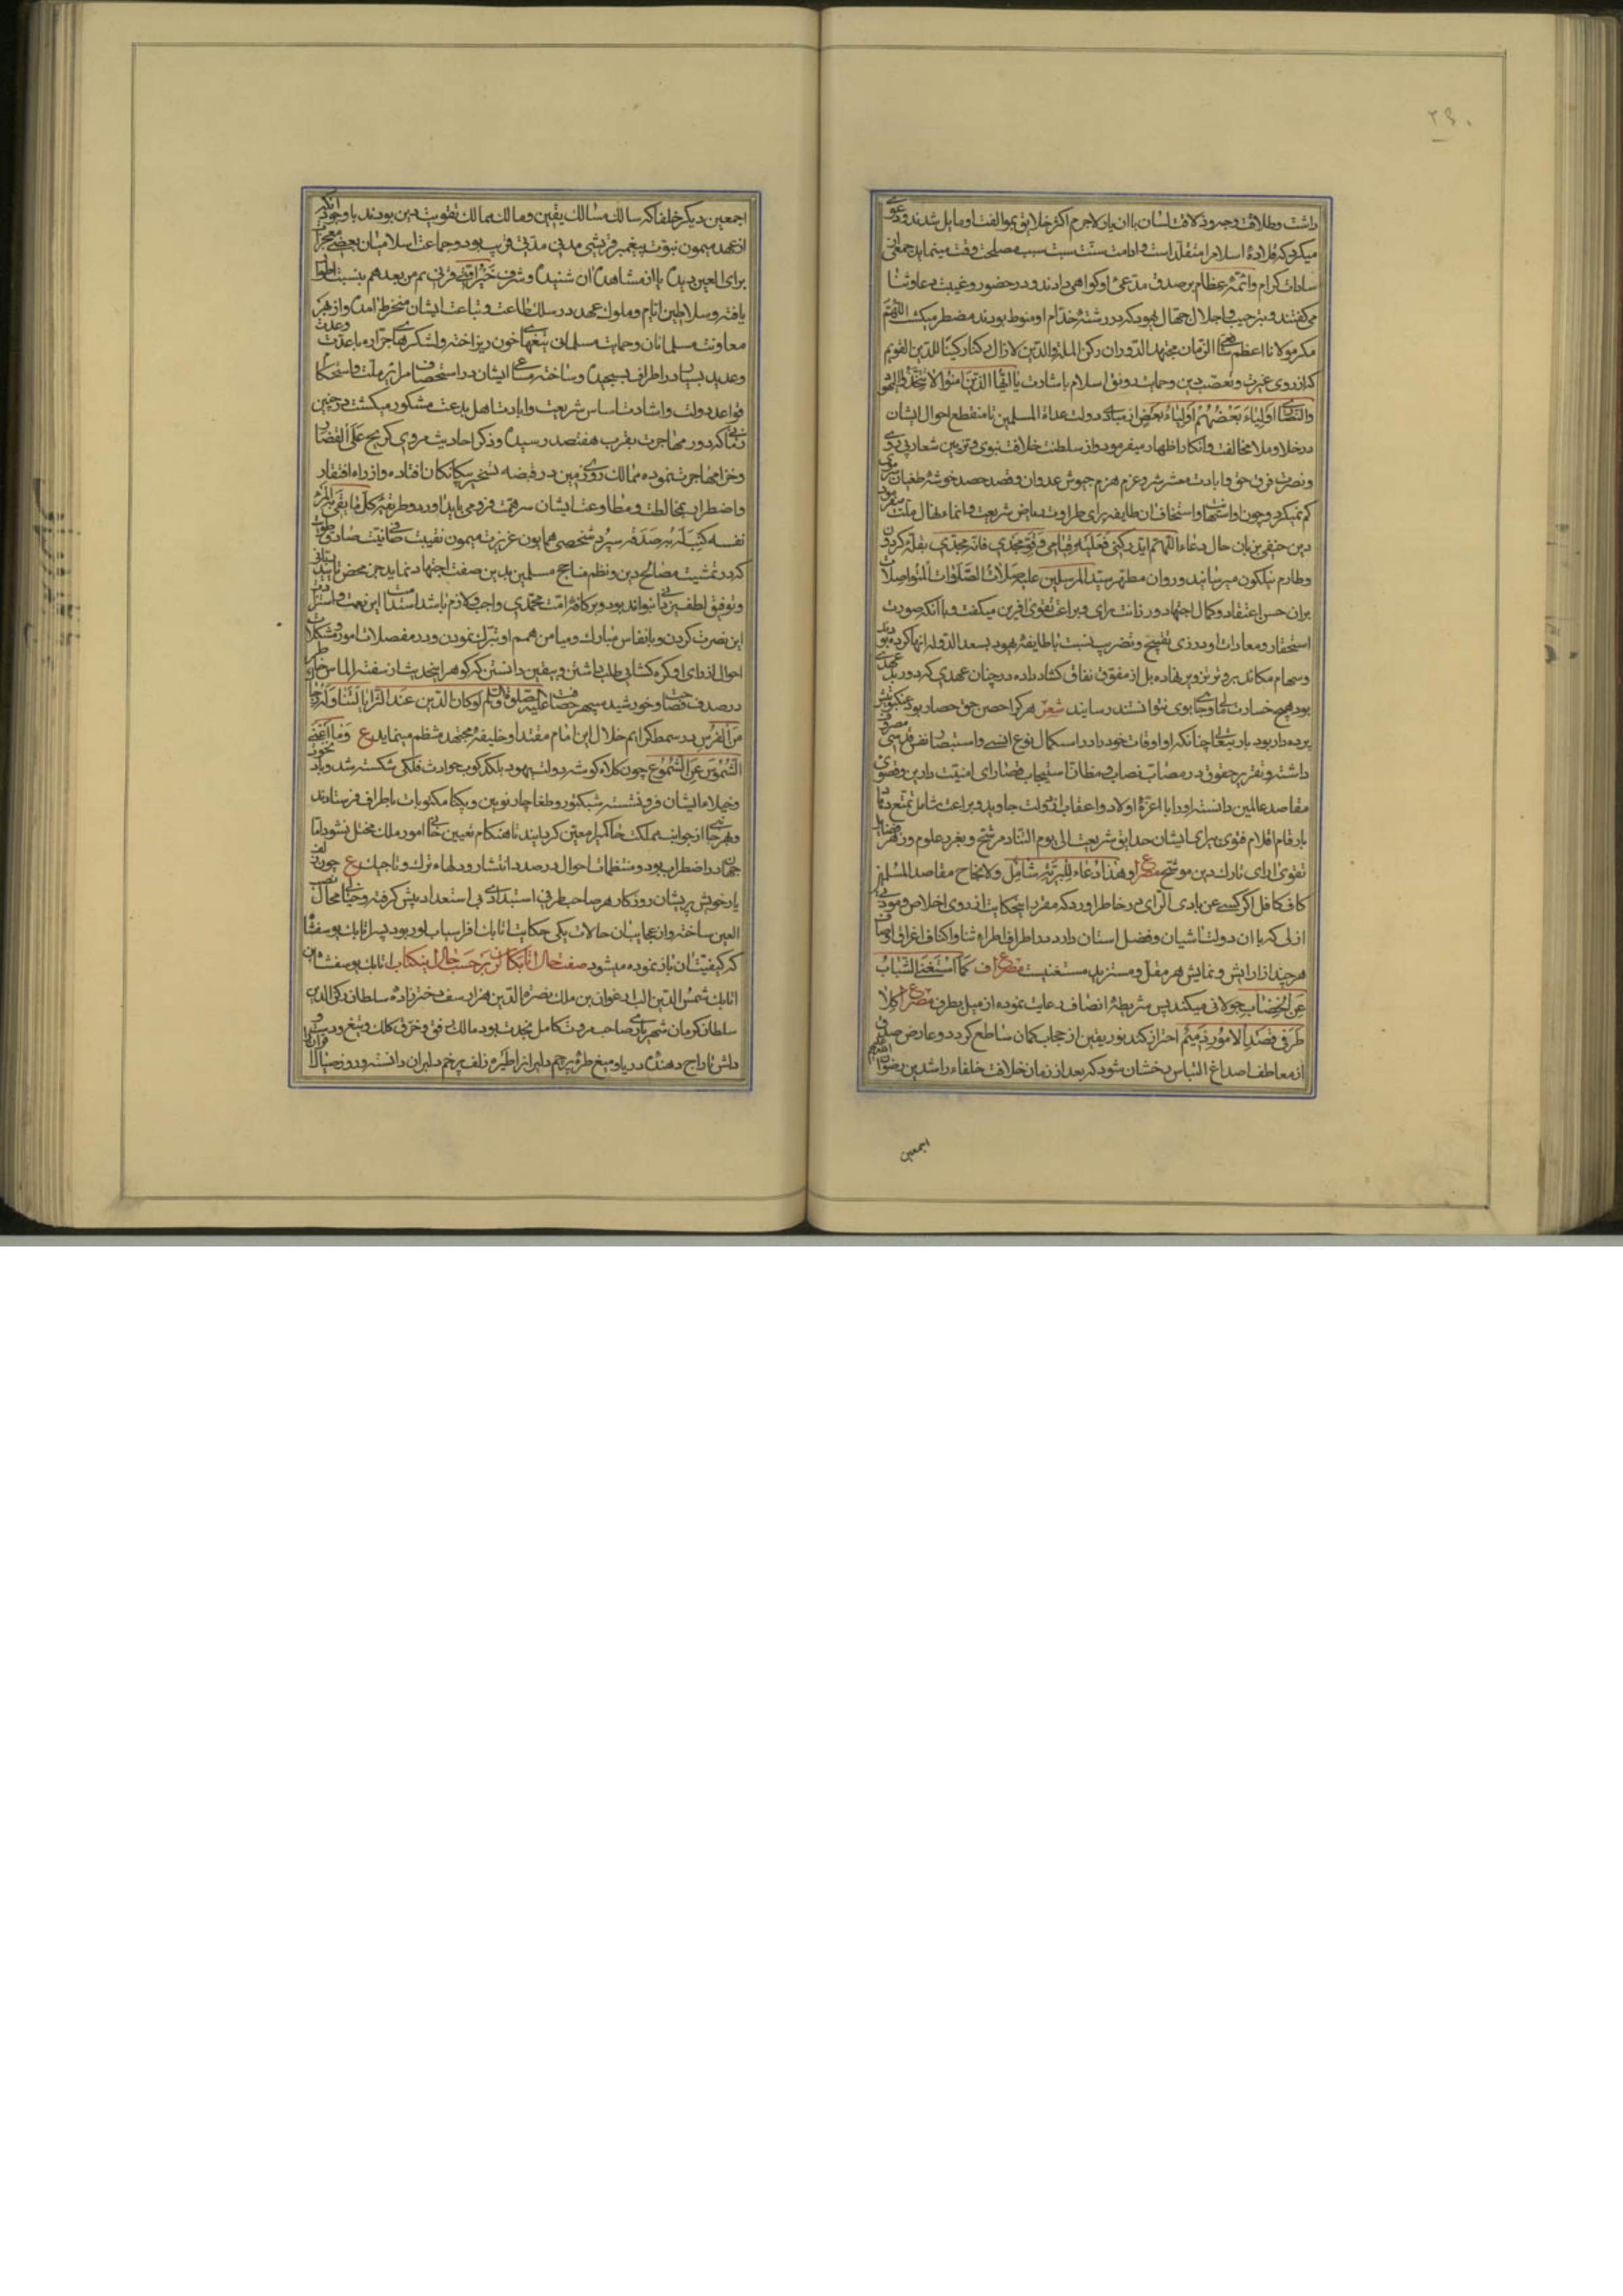 ۲۹۰
داشت وطلاقت وجه وذلاقت لسان با ان یار لاجرم اکثر خلایق بموالفت او مایل شدند و دعوی
میکرد که قلادهٔ اسلام را متقلد است و ادامت سنت سبت سبب مصلحت وقت مینماید جمعی از
سادات کرام وائمهٔ عظام بر صدق مدعی او کواهی دادند و در حضور وغیبت دعا وثنا
می کفتند و بترحیب و اجلال جهال یهود که در رشتهٔ خدام او منوط بودند مضطر میکشت اللهم
مکر مولانا اعظم الزمان مجتهد الدوران رکن الملة والدین لازال رکنا رکینا للدین القویم
که از روی غیرت و تعصب دین وحمایت رونق اسلام باشارت یا ایها الذین امنوا لا تتخذوا الیهود
والنصاری اولیاء بعضهم اولیاء بعض از مبادی دولت عداة المسلمین تا منقطع احوال ایشان
در خلا وملا مخالفت وانکار اظهار میفرمود و از سلطنت خلافت نبوی وتربین شعار
ونصرت فرق حق و ابادت معشر شر و عزم هزم جیوش عدوان وقصد حصد خوشهٔ طغیان
کم نمیکرد و چون او استهانت و استخفاف ان طایفه برای طراوت ریاض شریعت و انماء نهال ملت
دین حنیفی بزبان حال دعاء اللهم اید رکنی فعلیه قیامی وقو مجدی فانه مجدی بقلهٔ کردون
وطارم نیلکون میرسانید و روان مطهر سید المرسلین علیه صلات الصلوات المتواصلات
بران حسن اعتقاد وکمال اجتهاد ورزانت رای وبراعت تقوی افرین میکفت و با آنکه صورت
استحقار ومعادات او در زی تقبیح وتضریب نسبت با طایفهٔ یهود بسعد الدوله انها کرده بودند
وسهام مکائد بر وتر تزویر نهاده بل از مفوق نفاق کشاد داده در چنان عهدی که دور بل عهدی
بود هیچ خسارت بموی نتوانستند رسانید شعر هر کرا احصن حق حصار بود عنکبوتیش
پرده دار بود باری تعالی چنانکه او اوقات خود را در استکمال نوع انسی واستبصار نفس قدسی مصروف
داشته وتقریر حقوق در مصاب نصاب ومظان استیجاب قضا رای امنیت دارین وقصوی
مقاصد عالمین دانسته او را با اعزهٔ اولاد واعقاب بدولت جاوید و براعت شامل تمتع دهاد
بارقام اقلام فتوی برای ایشان حدایق شریعت الی یوم التناد مرشح وبغرر علوم ودرر فضایل
تقوی ارای تارک دین موشح ع وهذا دعاء للبریة شامل ولانجاح مقاصد المسلمین
کاف کافل اکر کسی عن بادی الرای در خاطر اورد که مقرر اینحکایت از روی اخلاص ومودتی
ازلی که با ان دولت اشیان وفضل استان دارد در اطراف اطراء ثنا واکناف اغراق اوصاف
هر چند از ارایش ونمایش هر مقل ومستزید مستغنیست مصراع کما استغنی الشباب
عن الخضاب جولانی میکند پس شریطهٔ انصاف رعایت نموده از میل بطرفی مصراع کلا
طرفی قصد الامور ذمیم احتراز کند نور یقین از حجاب کمان ساطع کردد وعارض صدق
از معاطف اصداغ التباس رخشان شود که بعد از زمان خلافت خلفاء راشدین رضوان الله علیهم
اجمعین
اجمعین دیکر خلفا که سالک مسالک یقین ومالک ممالک تقویت دین بودند با وجود آنکه
از عهد میمون نبوت پیغمبر قریشی مدنی مدتی قریب بود وجماعت اسلامیان بعضی معجزات
برای العین دیده یا از مشاهدان شنیده وشرف خیر امتی قرنی ثم من بعدهم
یافته وسلاطین ایام وملوک عهد در سلک طاعت وتباعت ایشان منخرط امده و از بهر
معاونت مسلمانان وحمایت مسلمان تیغهای خون ریز اخته ولشکرهای جراره با عدت وعدت
وعدید بسیار در اطراف بسیجیده وساخته مساعی ایشان در استحصاف مرایر ملت واستحکام
قواعد دولت واشادت اساس شریعت وابادت اهل بدعت مشکور میکشت در چنین
زمانی که دور مهاجرت بقرب هفتصد رسیده وذکر احادیث مروی کریح علی القضبان
وخزامها جرت نموده ممالک روی زمین در قبضه تسخیر بیکانکان افتاده و از راه افتقار
واضطراب بمخالطت ومطاوعت ایشان سر همت فرو می باید اورد و طریقهٔ کل ما
نفسه کتب له به صدقة سپرد شخصی همایون عزیزت میمون نقیبت صافی نیت صادق طویت
که در تمشیت مصالح دین ونظم مناجح مسلمین بدین صفت اجتهاد نماید جز بمحض تایید ربانی
وتوفیق لطف یزدانی نتواند بود و بر کافهٔ امت محمدی واجب ولازم باشد استدامت این نعمت
این نصرت کردن و بانفاس مبارک ومیامن همم او تبرک نمودن و در مفصلات امور ومشکلات
احوال از رای او کره کشایی طلب داشتن و بیقین دانستن که کوهر اینحدیث از سفته الماس خاطر
در صدف فصاحت وخورشید سپهر حصافت علیه الصلوة والسلم لو کان الدین عند الثریا لتناوله رجال
من الفرس در سمط کرایم خلال این امام مقتدا وخلیفهٔ مجتهد منتظم مینماید ع وما اغنی
الشموس عن الشموع چون کلاه کوشهٔ دولت یهود بلکدکوب حوادث فلکی شکسته شد وباد نخوت
وخیلاء ایشان فرو نشست شیکتور وطغاچار نوین وبکتا مکتوبات باطراف فرستادند
وبهر جانبی از جوانب مملکت حاکمی را معین کردانیدند تا هنکام تعیین خانی امور ملک مختل نشود اما
جهان در اضطراب بود ومنتظمات احوال در صدد انتشار ودلهاء ترک وتاجیک ع چون زلف
یار خویش پریشان روزکار هر صاحب طرفی استبدادی بی استعداد پیش کرفته وخیالی محال نصب
العین ساخته وان عجایب ان حالات یکی حکایت اتابک افراسیاب لور بود پسر اتابک یوسفشاه
که کیفیت ان باز نموده میشود صفت حال اتابکان لر بر حسب حال اینکتاب اتابک یوسفشاه بن
اتابک شمس الدین الب ارغوان بن ملک نصرة الدین هزار سف دخترزادهٔ سلطان رکن الدین
سلطان کرمان شهریاری صاحب مروت کامل نجدت بود مالک رق وحرفی کلک وتیغ
دلش تاراج دهندهٔ دریا ومیغ طرهٔ پرچم دلیرانرا طیرهٔ زلف پرخم دلبران دانسته و روز